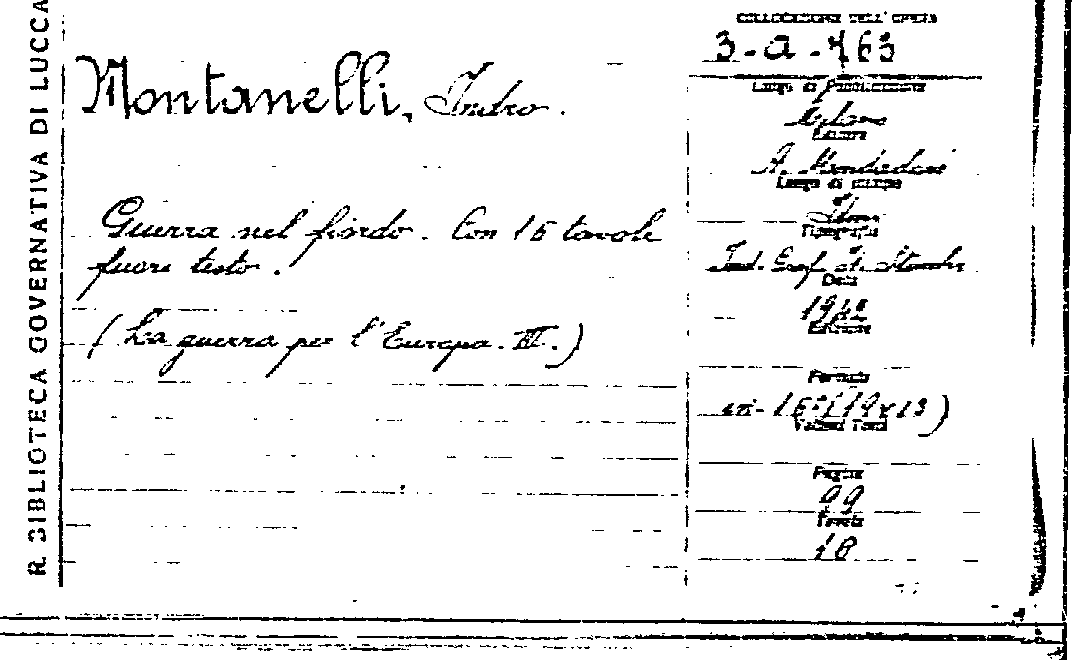 R. BIBLIOTECA GOVERNATIVA DI LUCCA
Montanelli, Indro.
Guerra nel fiordo. Con 16 tavole
fuori testo.
(La guerra per l'Europa. III.)
COLLOCAZIONE DELL'OPERA
3-a-763
Luogo di Pubblicazione
Milano
Editore
A. Mondadori
Luogo di stampa
Tipografia
Data
1942
Edizione
Formato
in-16° (19x13)
Volumi Tomi
Pagine
99
Tavole
16